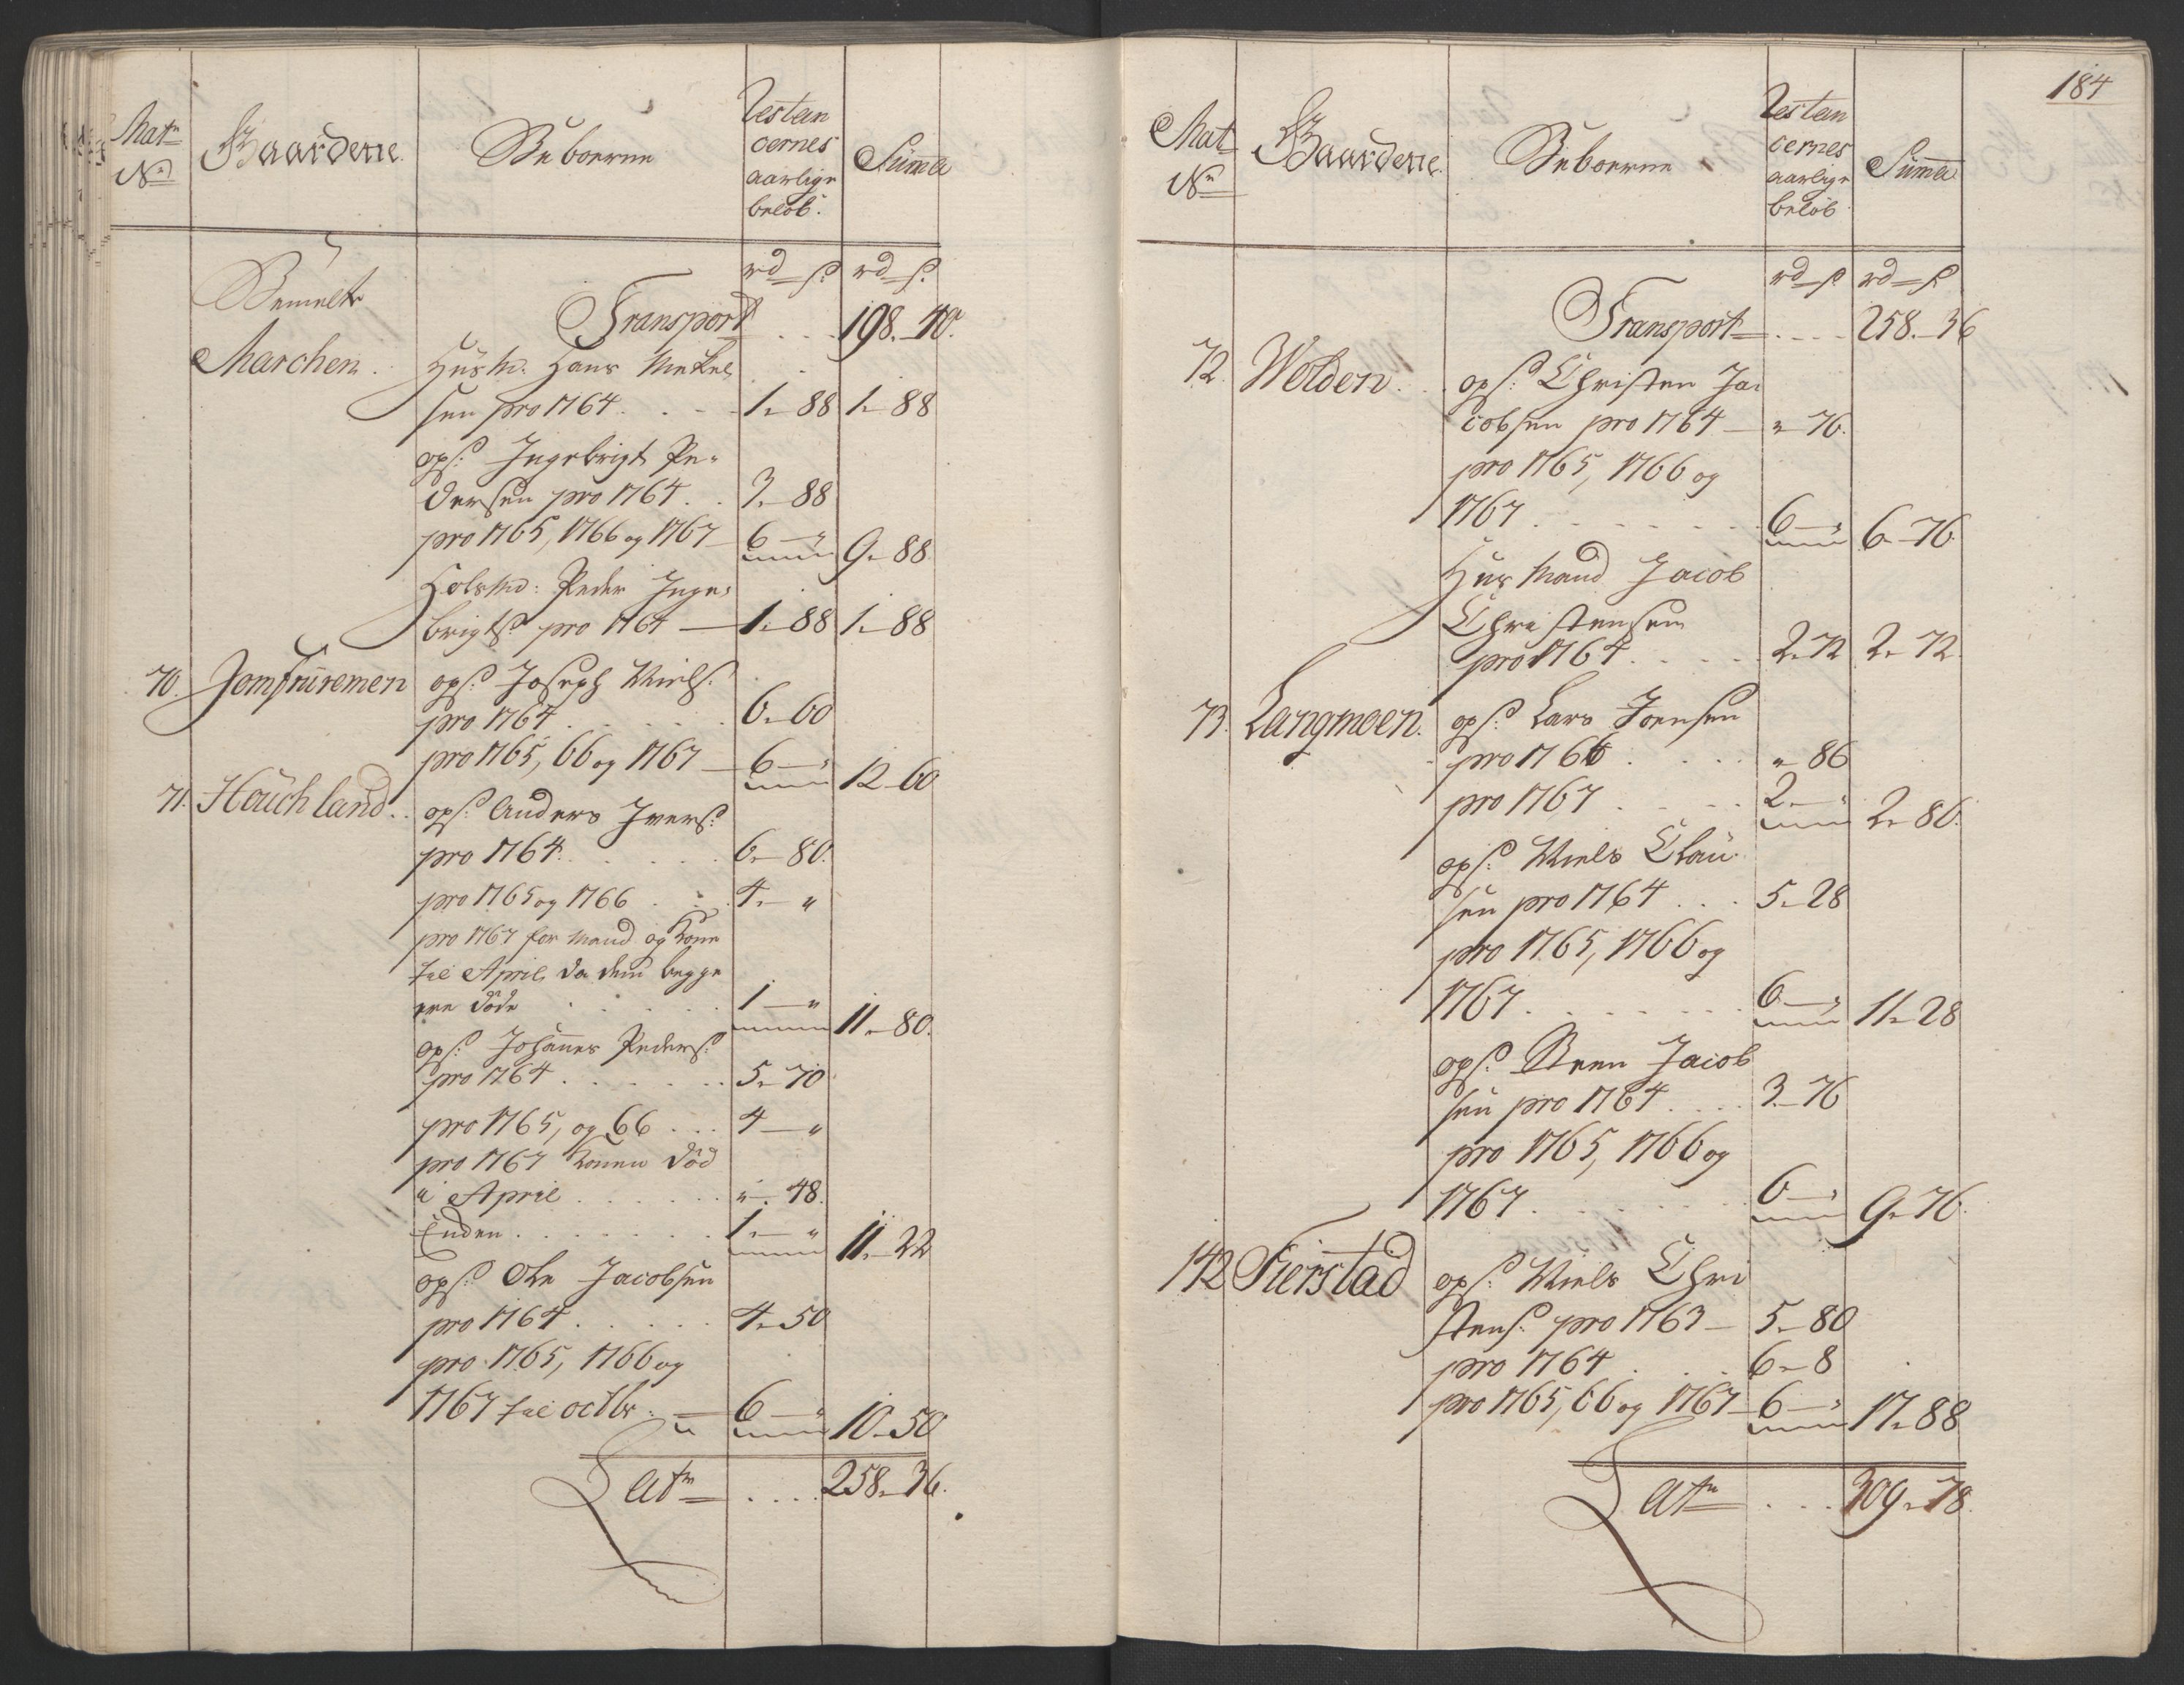 Mat. No Gaardene Beboerne Restancernes aarlige beløb. Summa
rd ß. rd ß.
Transport . . . 198. 40.
Bemelte
Marchen . Husmd. Hans Mekel
sen pro 1764 . . . 1. 88 1. 88
ops: Ingebrigt Pe-
dersen pro 1764 . . 3. 88
pro 1765, 1766 og 1767 6 — " 9. 88
Holsmd: Peder Inge-
brigts: pro 1764 — 1. 88 1. 88
70. Jomfrüremen ops: Joseph Niels:
pro 1764 . . . . . 6. 60
pro 1765, 66 og 1767 — 6 — " 12. 60
71. Houchland . . ops: Anders Ivers:
pro 1764. . . . . 6. 80.
pro 1765 og 1766 . . . 4. — "
pro 1767 for Mand og Kone
til April, da dem begge
ere døde . . . . . 1 — " 11. 80.
ops: Johannes Peders:
pro 1764 . . . . . . 5. 70
pro 1765, og 66 . . . 4 — "
pro 1767 Konen død
i April . . . . . . " . 48.
Enden . . . . . . . 1. — " 11. 22
ops: Ole Jacobsen
pro 1764 . . . . . 4. 50
pro 1765, 1766 og
1767 til octbr: — 6 — " 10. 50
Late . . . . 258. 36.
184
Mat. No Gaardene Beboerne Restancernes aarlige beløb Summa
rd ß rd ß
Transport . . . . 258. 36
72. Wolden . . ops: Christen Ja-
cobsen pro 1764 — " 76.
pro 1765, 1766 og
1767 . . . . . . . 6 — " 6. 76.
Hus Mand Jacob
Christensen
pro 1764 . . . . . 2. 72 2. 72
73. Langmoen. ops: Lars Joensen
pro 1766 . . . . " 86
pro 1767 . . . . 2. — " 2. 86.
ops: Niels Clau-
sen pro 1764 . . . 5. 28
pro 1765, 1766 og
1767 . . . . . . . 6 — " 11. 28
ops: Steen Jacob
sen pro 1764 . . . . 3. 76
pro 1765, 1766 og
1767 . . . . . . . 6 — " 9. 76.
142 Fierstad ops: Niels Chri
stens: pro 1763 — 5. 80
pro 1764 . . . 6. 8
pro 1765, 66 og 1767 — 6 — " 17. 88
Late . . . 309. 78.